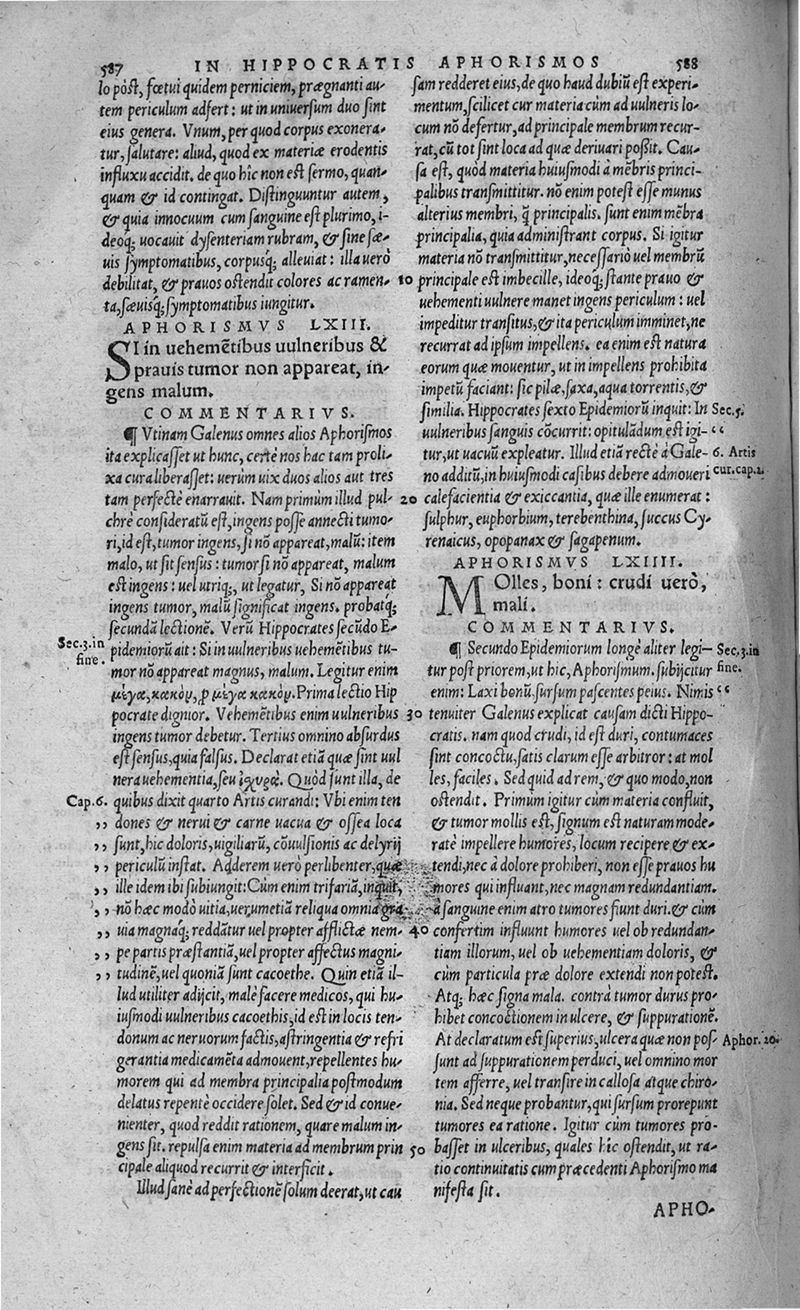 587 IN HIPPOCRATIS APHORISMOS 588
lo pòst, fœtui quidem perniciem, prægnanti au-
tem periculum adfert: ut in uniuersum duo sint
eius genera. Vnum, per quod corpus exonera-
tur, salutare: aliud, quod ex materiæ erodentis
influxu accidit. de quo hic non est sermo, quan-
quam & id contingat. Distinguuntur autem,
& quia innocuum cum sanguine est plurimo, i-
deoq; uocauit dysenteriam rubram, & sine sæ-
uis symptomatibus, corpusq; alleuiat: illa uerò
debilitat, & prauos ostendit colores ac ramen-
ta, sæuisq; symptomatibus iungitur.
APHORISMVS LXIII.
SI in uehemẽtibus uulneribus &
prauis tumor non appareat, in-
gens malum.
COMMENTARIVS.
¶ Vtinam Galenus omnes alios Aphorismos
ita explicasset ut hunc, certè nos hac tam proli-
xa cura liberasset: uerùm uix duos alios aut tres
tam perfectè enarrauit. Nam primùm illud pul-
chrè consideratũ est, ingens posse annecti tumo-
ri, id est, tumor ingens, si nõ appareat, malũ: item
malo, ut sit sensus: tumor si nõ appareat, malum
est ingens: uel utriq;, ut legatur, Si nõ appareat
ingens tumor, malũ significat ingens. probatq;
secundã lectionẽ. Verũ Hippocrates secũdo E-
Sec.3.in
fine.
pidemiorũ ait: Si in uulneribus uehemẽtibus tu-
mor nõ appareat magnus, malum. Legitur enim
μέγα, κακὸν, ϼ μέγα κακὸν. Prima lectio Hip
pocrate dignior. Vehemẽtibus enim uulneribus
ingens tumor debetur. Tertius omnino absurdus
est sensus, quia falsus. Declarat etiã quæ sint uul
nera uehementia, seu ἰχυρὰ. Quòd sunt illa, de
Cap.6. quibus dixit quarto Artis curandi: Vbi enim ten
,, dones & nerui & carne uacua & ossea loca
,, sunt, hic doloris, uigiliarũ, cõuulsionis ac delyrij
,, periculũ instat. Addderem uerò perlibenter, quæ
,, ille idem ibi subiungit: Cùm enim trifariã, inquit,
,, nõ hæc modò uitia, uerumetiã reliqua omnia gra-
,, uia magnaq; reddãtur uel propter afflictæ nem-
,, pe partis præstantiã, uel propter affectus magni-
,, tudinẽ, uel quoniã sunt cacoethe. Quin etiã il-
lud utiliter adijcit, malè facere medicos, qui hu-
iusmodi uulneribus cacoethis, id est in locis ten-
donum ac neruorum factis, astringentia & refri
gerantia medicamẽta admouent, repellentes hu-
morem qui ad membra principalia postmodum
delatus repentè occidere solet. Sed & id conue-
nienter, quod reddit rationem, quare malum in-
gens sit. repulsa enim materia ad membrum prin
cipale aliquod recurrit & interficit.
Illud sanè ad perfectionẽ solum deerat, ut cau
sam redderet eius, de quo haud dubiũ est experi-
mentum, scilicet cur materia cùm ad uulneris lo-
cum nõ defertur, ad principale membrum recur-
rat, cũ tot sint loca ad quæ deriuari possit. Cau-
sa est, quòd materia huiusmodi à mẽbris princi-
palibus transmittitur. nõ enim potest esse munus
alterius membri, q̃ principalis. sunt enim mẽbra
principalia, quia administrant corpus. Si igitur
materia nõ transmittitur, necessariò uel membrũ
10 principale est imbecille, ideoq; stante prauo &
uehementi uulnere manet ingens periculum: uel
impeditur transitus, & ita periculum imminet, ne
recurrat ad ipsum impellens. ea enim est natura
eorum quæ mouentur, ut in impellens prohibita
impetũ faciant: sic pilæ, saxa, aqua torrentis, &
similia. Hippocrates sexto Epidemiorũ inquit: In Sec.5.
uulneribus sanguis cõcurrit: opitulãdum est igi- “
tur, ut uacuũ expleatur. Illud etiã rectè à Gale- 6. Artis
no additũ, in huiusmodi casibus debere admoueri cur.cap.2.
20 calefacientia & exiccantia, quæ ille enumerat:
sulphur, euphorbium, terebenthina, succus Cy-
renaicus, opopanax & sagapenum.
APHORISMVS LXIIII.
MOlles, boni: crudi uerò,
mali.
COMMENTARIVS.
¶ Secundo Epidemiorum longè aliter legi- Sec.3.in
tur post priorem, ut hic, Aphorismum. subijcitur fine.
enim: Laxi bonũ. sursum pascentes peius. Nimis “
30 tenuiter Galenus explicat causam dicti Hippo-
cratis. nam quod crudi, id est duri, contumaces
sint concoctu, satis clarum esse arbitror: at mol
les, faciles. Sed quid ad rem, & quo modo, non
ostendit. Primum igitur cùm materia confluit,
& tumor mollis est, signum est naturam mode-
ratè impellere humores, locum recipere & ex-
tendi, nec à dolore prohiberi, non esse prauos hu
mores qui influant, nec magnam redundantiam.
à sanguine enim atro tumores fiunt duri. & cùm
40 confertim influunt humores uel ob redundan-
tiam illorum, uel ob uehementiam doloris, &
cùm particula præ dolore extendi non potest.
Atq; hæc signa mala. contrà tumor durus pro-
hibet concoctionem in ulcere, & suppurationẽ.
At declaratum est superius, ulcera quæ non pos- Aphor.20.
sunt ad suppurationem perduci, uel omnino mor
tem afferre, uel transire in callosa atque chiro-
nia. Sed neque probantur, qui sursum prorepunt
tumores ea ratione. Igitur cùm tumores pro-
50 basset in ulceribus, quales hic ostendit, ut ra-
tio continuitatis cum præcedenti Aphorismo ma
nifesta sit.
APHO-